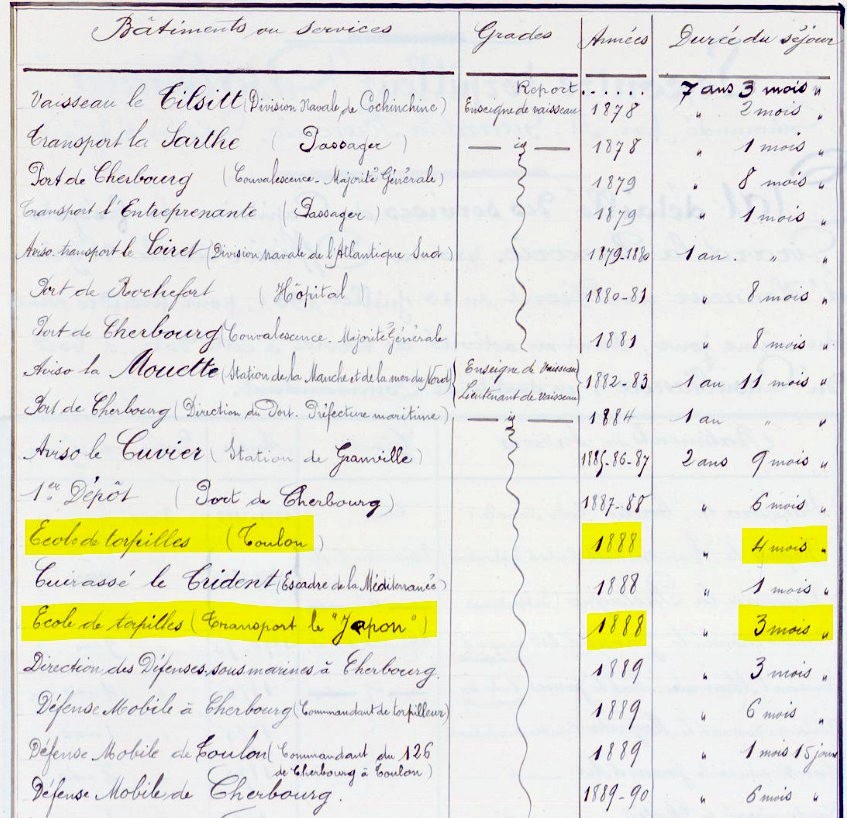 Bâtiments ou services Grades Années Durée du séjour
Report ...... 7 ans 3 mois "
Vaisseau le Tilsitt (Division Navale de Cochinchine) Enseigne de vaisseau 1878 " 2 mois "
Transport la Sarthe ( Passager ) — id — 1878 " 1 mois "
Port de Cherbourg (Convalescence - Majorité Générale) 1879 " 8 mois "
Transport l'Entreprenante ( Passager ) 1879 " 1 mois "
Aviso-transport le Loiret (Division navale de l'Atlantique Sud) 1879-1880 1 an . " "
Port de Rochefort ( Hôpital 1880-81 " 8 mois "
Port de Cherbourg (Convalescence. Majorité Générale 1881 " 8 mois "
Aviso la Mouette (Station de la Manche et de la mer du Nord) Enseigne de Vaisseau 1882-83 1 an 11 mois "
Lieutenant de vaisseau
Port de Cherbourg ( Direction du Port. Préfecture maritime) — id — 1884 1 an " "
Aviso le Cuvier ( Station de Granville) 1885-86-87 2 ans 9 mois "
1er Dépôt ( Port de Cherbourg ) 1887-88 " 6 mois "
Ecole de torpilles ( Toulon ) 1888 " 4 mois "
Cuirassé le Trident (Escadre de la Méditerranée) 1888 " 1 mois "
Ecole de torpilles ( Transport le "Japon" ) 1888 " 3 mois "
Direction des Défenses sous marines à Cherbourg. 1889 " 3 mois "
Défense Mobile à Cherbourg (Commandant de torpilleur) 1889 " 6 mois "
Défense Mobile de Toulon ( Commandant du 126 1889 " 1 mois 15 jours
de Cherbourg à Toulon )
Défense Mobile de Cherbourg . 1889-90 " 6 mois "